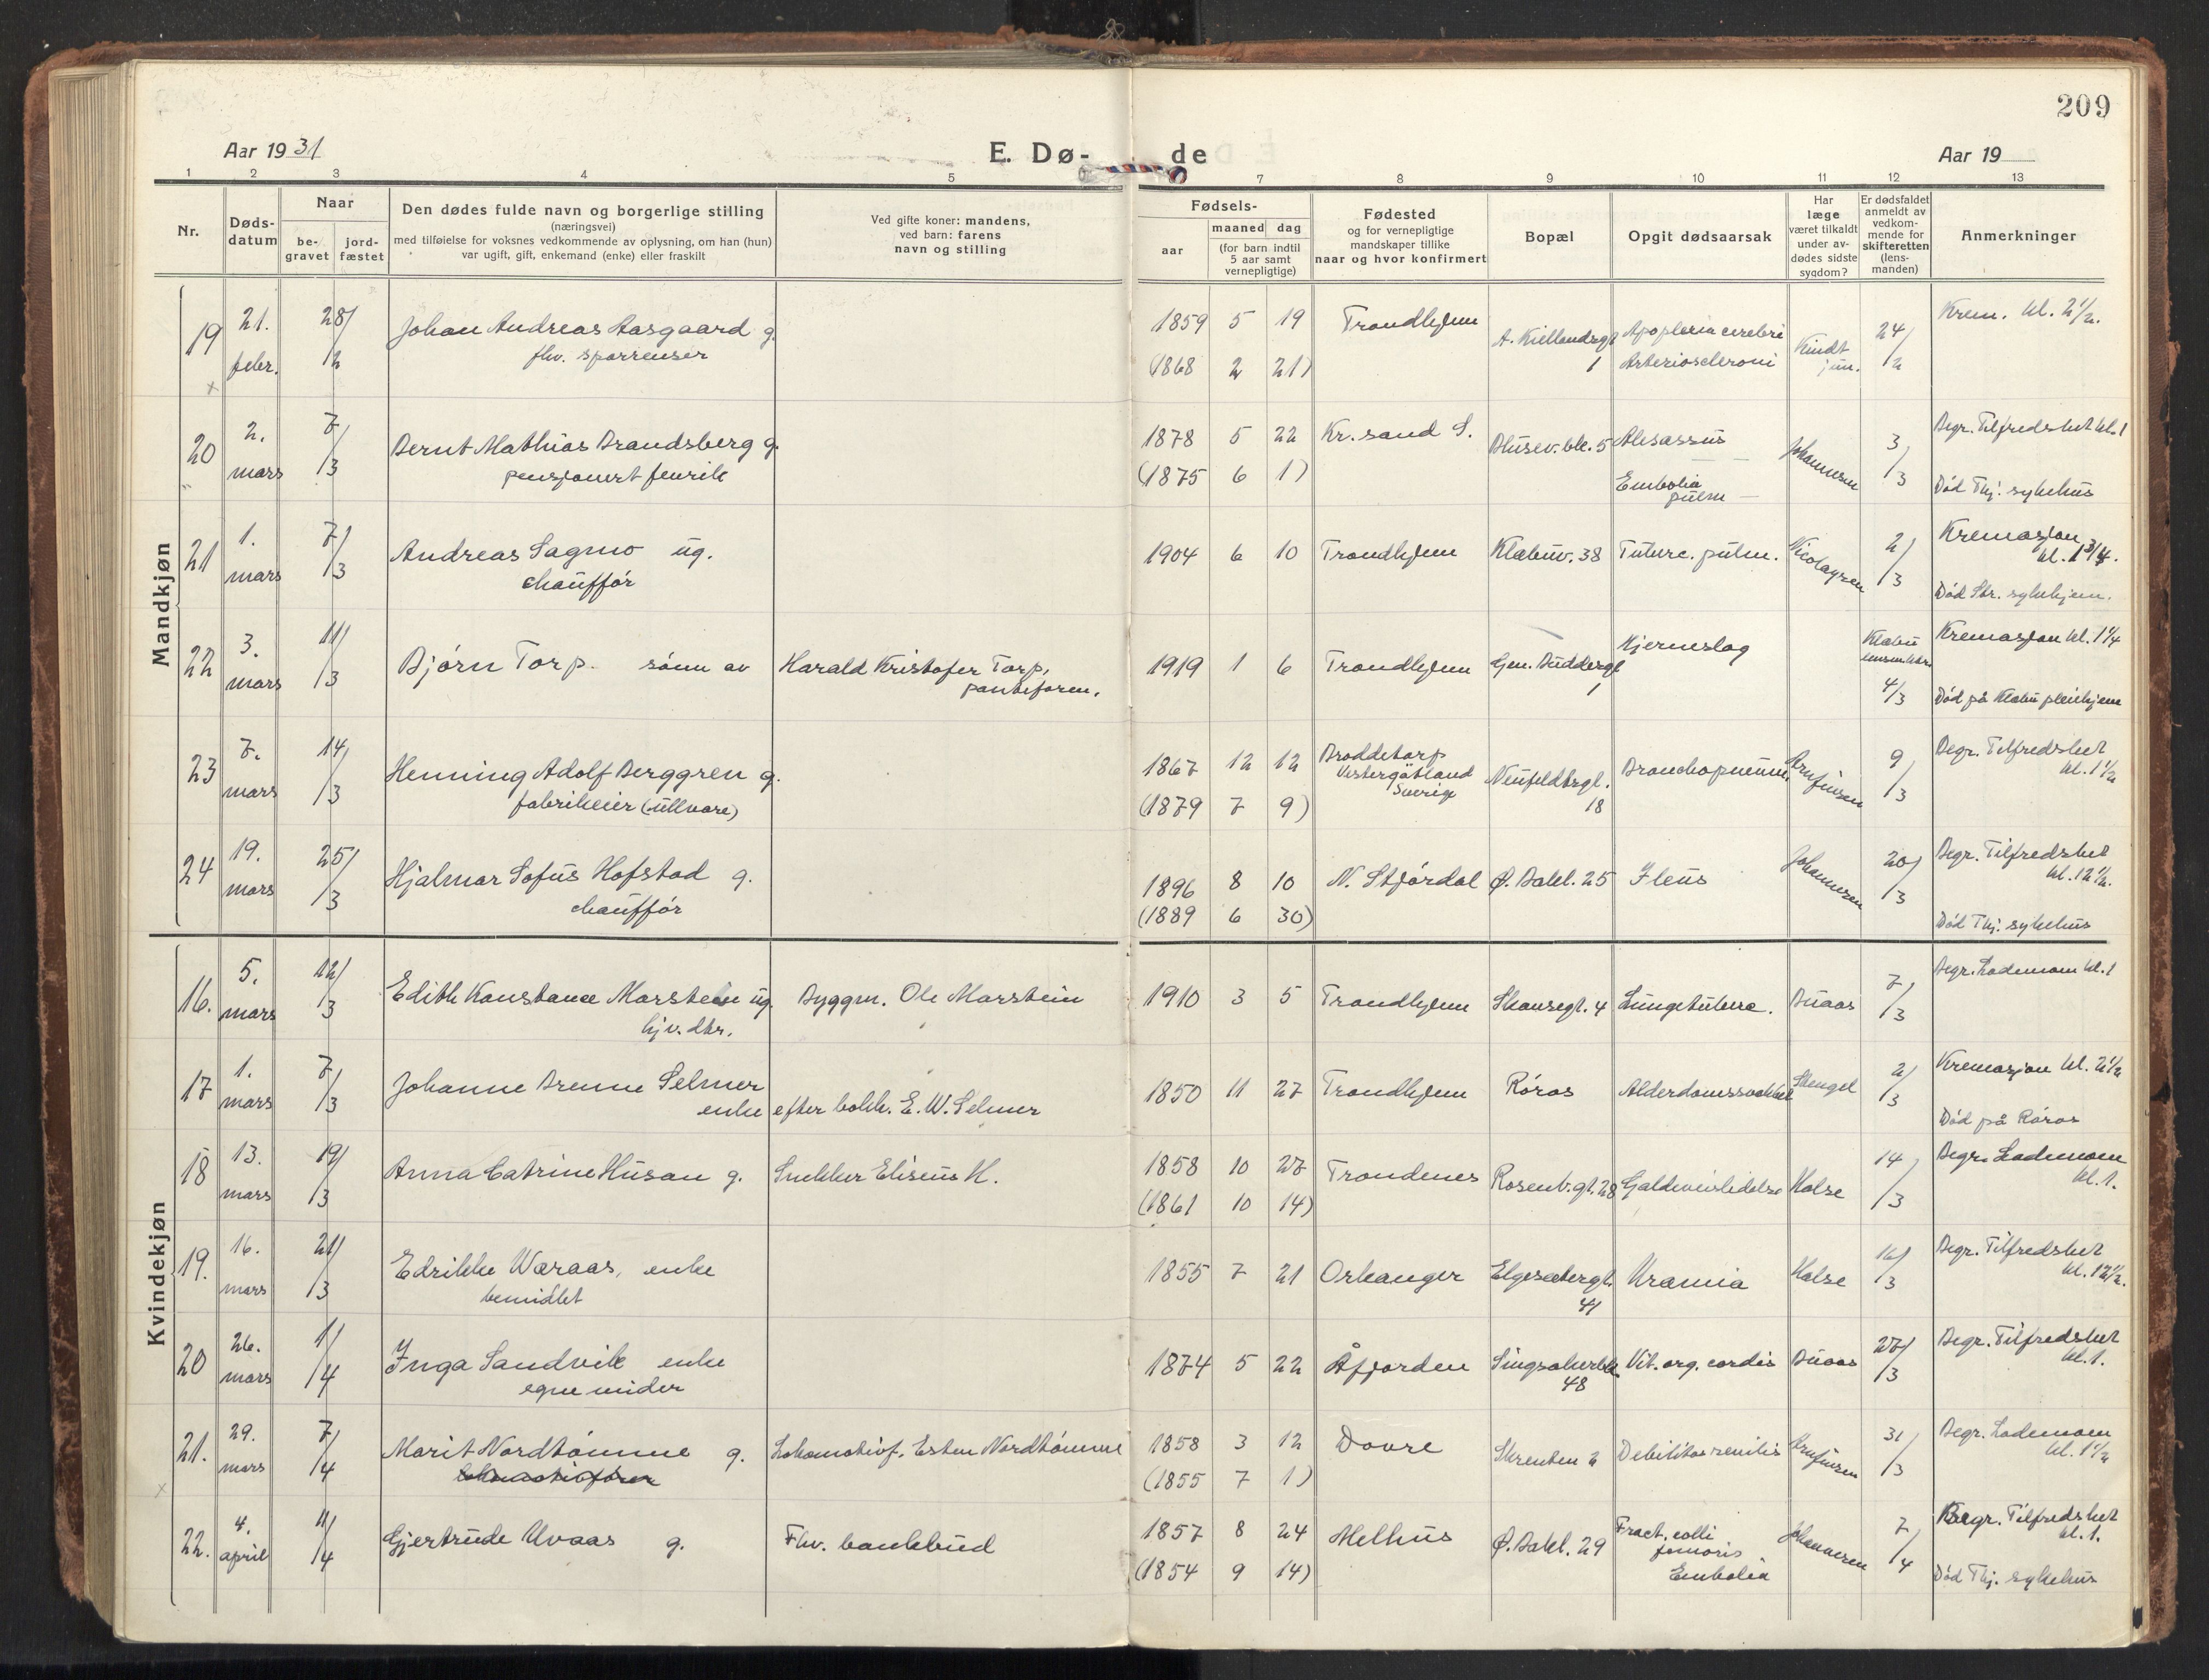 209
Aar 1931
E. Dø-
de
Aar 19
1 2 3 4 5 6 7 8 9 10 11 12 13
Nr.
Døds-
datum
Naar
be-
gravet
jord-
fæstet
Den dødes fulde navn og borgerlige stilling
(næringsvei)
med tilføielse for voksnes vedkommende av oplysning, om han (hun)
var ugift, gift, enkemand (enke) eller fraskilt
Ved gifte koner: mandens,
ved barn: farens
navn og stilling
Fødsels-
aar
maaned dag
(for barn indtil
5 aar samt
vernepligtige)
Fødested
og for vernepligtige
mandskaper tillike
naar og hvor konfirmert
Bopæl
Opgit dødsaarsak
Har
læge
været tilkaldt
under av-
dødes sidste
sygdom?
Er dødsfaldet
anmeldt av
vedkom-
mende for
skifteretten
(lens-
manden)
Anmerkninger
Mandkjøn
19 21. febr. 28/2 Johan Andreas Aasgaard g. 1859 5 19 Trondhjem A. Kiellandsgt 1 Apoplexia cerebri Kindt jun. 24/2 Krem. kl. 2½.
fhv. sporrenser (1868 2 21) Arterioscleroni
20 2. mars 7/3 Bernt Mathias Brandsberg g. 1878 5 22 Kr.sand S. Abusassus Johannesen 3/3 Begr. Tilfredshet kl. 1
pensjonert fenrik (1875 6 1) Embolia pulm Død Thj. sykehus
21 1. mars 7/3 Andreas Sagmo ug. 1904 6 10 Trondhjem Klæbuv. 38 Tuberc. pulm. Nicolaysen 2/3 Kremasjon kl. 1 3/4.
chauffør Død Str. sykehjem.
22 3. mars 11/3 Bjørn Torp. sønn av Harald Kristofer Torp, 1919 1 6 Trondhjem Gen. Buddesgt 1 Hjerneslag Klæbu 4/3 Kremasjon kl. 1¼
Død på Klæbu pleiehjem
23 7. mars 14/3 Henning Adolf Berggren g. 1867 12 12 Broddetorp Vestergötland Sverige Neufeldtsgt. 18 Bronchopneum. Arnfinsen 9/3 Begr. Tilfredshet kl. 1½
fabrikeier (ullvare) (1879 7 9)
24 19. mars 25/3 Hjalmar Sofus Hofstad g. 1896 8 10 N. Stjørdal Ø. Bakl. 25 Ileus Johannesen 20/3 Begr. Tilfredshet kl. 12½.
chauffør (1889 6 30) Død Thj. sykehus
Kvindekjøn
16. 5. mars 12/3 Edith Konstance Marstein ug. Byggm. Ole Marstein 1910 3 5 Trondhjem Skansegt. 4 Lungetuberc. Buaas 7/3 Begr. Lademoen kl. 1
hjv. dtr.
17 1. mars 7/3 Johanne Brenne Selmer 1850 11 27 Trondhjem Røros Alderdomssvakhet Stengel 2/3 Kremasjon kl. 2½
enke efter bokh. E. W. Selmer Død på Røros
18 13. mars 19/3 Anna Catrine Husan g. Snekker Eliseus H. 1858 10 27 Trondenes Rosenb.gt. 28 Galdeveislidelse Halse 14/3 Begr. Lademoen kl. 1.
(1861 10 14)
19. 16. mars 21/3 Edrikke Wæraas, enke 1855 7 21 Orkanger Elgesetergt. 41 Uræmia Halse 16/3 Begr. Tilfredshet kl. 12½.
bemidlet
20 26. mars 1/4 Inga Sandvik enke 1874 5 22 Åfjorden Singsakerbk. 48 Vit. org. cordis Buaas 27/3 Begr. Tilfredshet kl. 1.
egne midler
21. 29. mars 7/4 Marit Nordtømme g. Lokomotivf. Esten Nordtømme 1858 3 12 Dovre Skrenten 2 Debilitas senilis Arnfinsen 31/3 Begr. Lademoen kl. 1½
lokomotivfører (1855 7 1)
22. 4. april 11/4 Gjertrude Uvaas g. Fhv. bankbud 1857 8 24 Melhus Ø. Bakl. 29 Fract. colli femoris Johannesen 7/4 Begr. Tilfredshet kl. 1.
(1854 9 14) Embolia Død Thj. sykehus